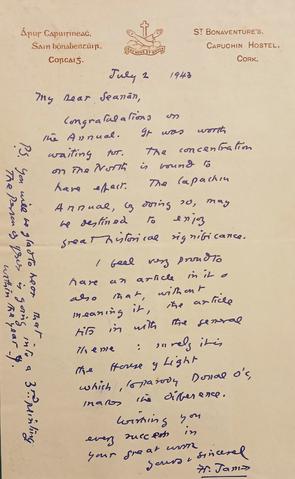 Áṗus Capuiṫíneaċ,
Sain bónabentúir,
Corcaiġ.
St Bonaventure's,
Capuchin Hostel,
Cork.
July 2 1943
My dear Seanán,
Congratulations on
the Annual. It was worth
waiting for. The concentration
on the North is bound to
have effect. The Capuchin
Annual, by doing so, may
be destined to enjoy
great historical significance.
I feel very proud to
have an article in it &
also that, without
meaning it, the article
fits in with the general
theme: surely it is
the House of Light
which, to parody Donal O'S,
makes the difference.
Wishing you
every success in
your great work
Yours sincerely
Fr. James
P.S. You will be glad to hear that
is going into a 3rd printing
within the year